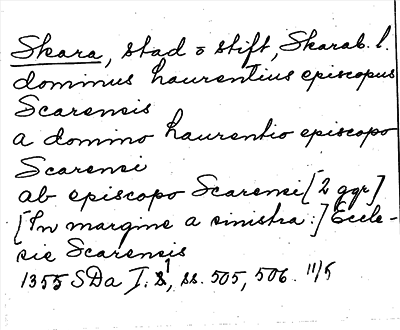 Skara, stad o stift, Skarab. l.
dominus Laurentius episcopus
Scarensis
a domino Laurentio episcopo
Scarensi
ab episcopo Scarensi [2 ggr]
[In margine a sinistra:] Eccle-
sie Scarensis
1355 SDa I. 1, ss. 505, 506. 11/5